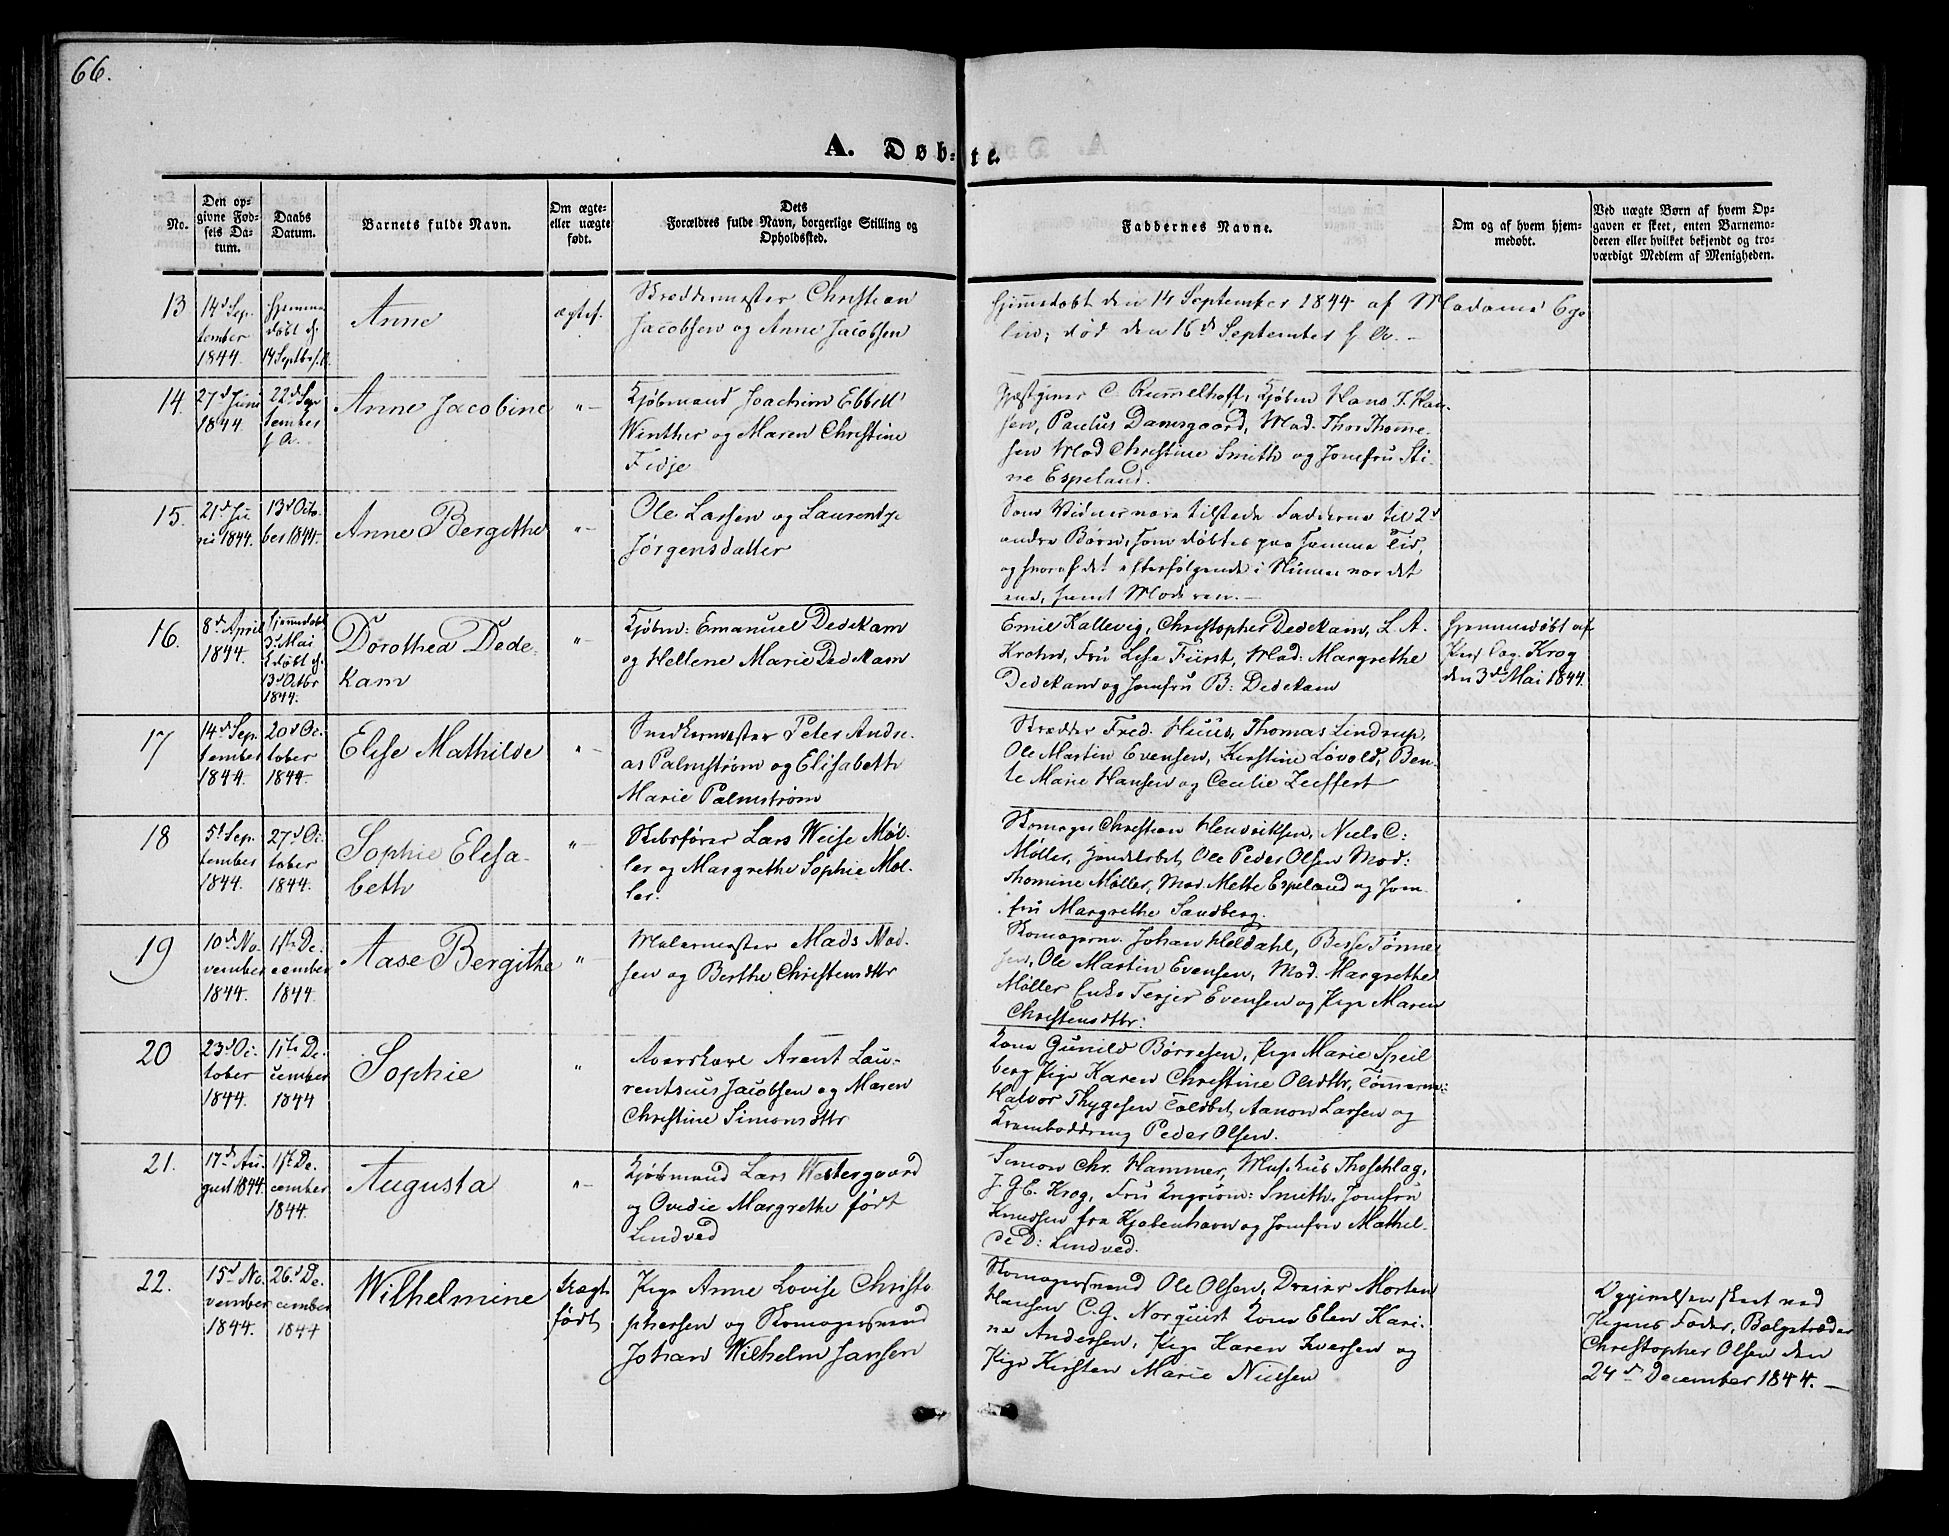 66.
A. Døb-te.
No.
Den op-
givne Fød-
sels Da-
tum.
Daabs
Datum.
Barnets fulde Navn.
Om ægte
eller uægte
født.
Dets
Forældres fulde Navn, borgerlige Stilling og
Opholdssted.
Faddernes Navne.
Om og af hvem hjem-
medøbt.
Ved uægte Børn af hvem Op-
gaven er skeet, enten Barnemo-
deren eller hvilket bekjendt og tro-
værdigt Medlem af Menigheden.
13
14d Sep.
tember
1844.
Hjemme
døbt d.
14 Septbr s. A.
Anne
ægtef.
Skreddermester Christian
Jacobsen og Anne Jacobsen
Hjemmedøbt den 14 September 1844 af Madame
lin; død den 16d September s. A. -
14.
27d Juni
1844.
22d Sep
tember
s. A.
Anne Jacobine
"-
Kjøbmand Joachim Ebbell
Winther og Maren Christine
Fidje
Gjæstgiver C. Rummelhoff, Kjøbm Hans J. Han-
sen, Paulus Damsgaard, Mad. Thor Thomme-
sen Mad Christine Smith og Jomfru Sti-
ne Espeland.
15.
21d Ju
ni 1844.
13d Octo-
ber 1844.
Anne Bergithe
"-
Ole Larsen og Laurentze
Jørgensdatter
Som Vidner vare tilstede Fadderne til 2d
andre Børn, som døbtes paa samme Tid,
og hvoraf det efterfølgende i Numer var det
ene, samt Moderen. -
16.
8d April
1844.
Hjemmedøbt
3d Mai
døbt d.
13d Octbr
1844.
Dorothea Dede-
kam
"-
Kjøbm: Emanuel Dedekam
og Hellene Marie Dedekam
Emil Kallevig, Christopher Dedekam, L. A.
Krohn, Fru Lise Fürst, Mad: Margrethe
Dedekam og Jomfru B: Dedekam
Hjemmedøbt af
Krog
den 3d Mai 1844.
17
14d Sep.
tember
1844.
20d Oc-
tober
1844.
Elise Mathilde
"-
Snedkermester Peter Andre-
as Palmstrøm og Elisabeth
Marie Palmstrøm
Skræder Fred. Huus, Thomas Lindrup,
Ole Martin Evensen, Kirstine Løvold, Ben-
te Marie Hansen og Cecilie Zeiffert
18
5t Sep.
tember
1844.
27d Oc-
tober
1844.
Sophie Elisa-
beth
"-
Skibsfører Lars Weise Møl-
ler og Margrethe Sophie Møl-
ler.
Skomager Christian Hendriksen, Niels C:
Møller, Handelsbet. Ole Peder Olsen Mad:
Thomine Møller, Mad. Mette Espeland og Jom-
fru Margrethe Sandberg.
19
10d No-
vember
1844.
1ste De-
cember
1844.
Aase Bergithe
"-
Malermester Mads Mad-
sen og Berthe Christensdttr
Skomagerm. Johan Heldahl, Besse Tønne
sen, Ole Martin Evensen, Mad. Margrethe
Møller Enke Terjer Evensen og Pige Maren
Christensdttr:
20
23d Oc-
tober
1844.
11te De-
cember
1844
Sophie
"
Arent Lau-
rentsius Jacobsen og Maren
Christine Simonsdttr
Kone Gunild Børresen, Pige Marie Speil
berg Pige Karen Christine Olsdttr, Tømmerm:
Halvor Thygesen Toldbet. Aanon Larsen og
Kramboddreng Peder Olsen.
21.
17d Au-
gust 1844.
1ste De-
cember
1844.
Augusta
"-
Kjøbmand Lars Westergaard
og Ovedie Margrethe født
Lindved
Simon Chr. Hammer, Musikus Th. Schlag,
J. G. C. Krog, Fru Smith, Jomfru
Knudsen fra Kjøbenhavn og Jomfru Mathil-
de D: Lindved.
22.
15d No-
vember
1844.
26d De-
cember
1844
Wilhelmine
Uægte
født
Pige Anne Lovise Christo
phersen og Skomagersvend
Johan Wilhelm Jansen
Skomagersvend Ole Olsen, Dreier Morten
Hansen C. G. Norquist Kone Elen Kari-
ne Andersen, Pige Karen Iversen og
Pige Kirsten Marie Nielsen
Opgivelsen skeet ved
Pigens Fader, Bælgetræder
Christopher Olsen den
24d December 1844. -